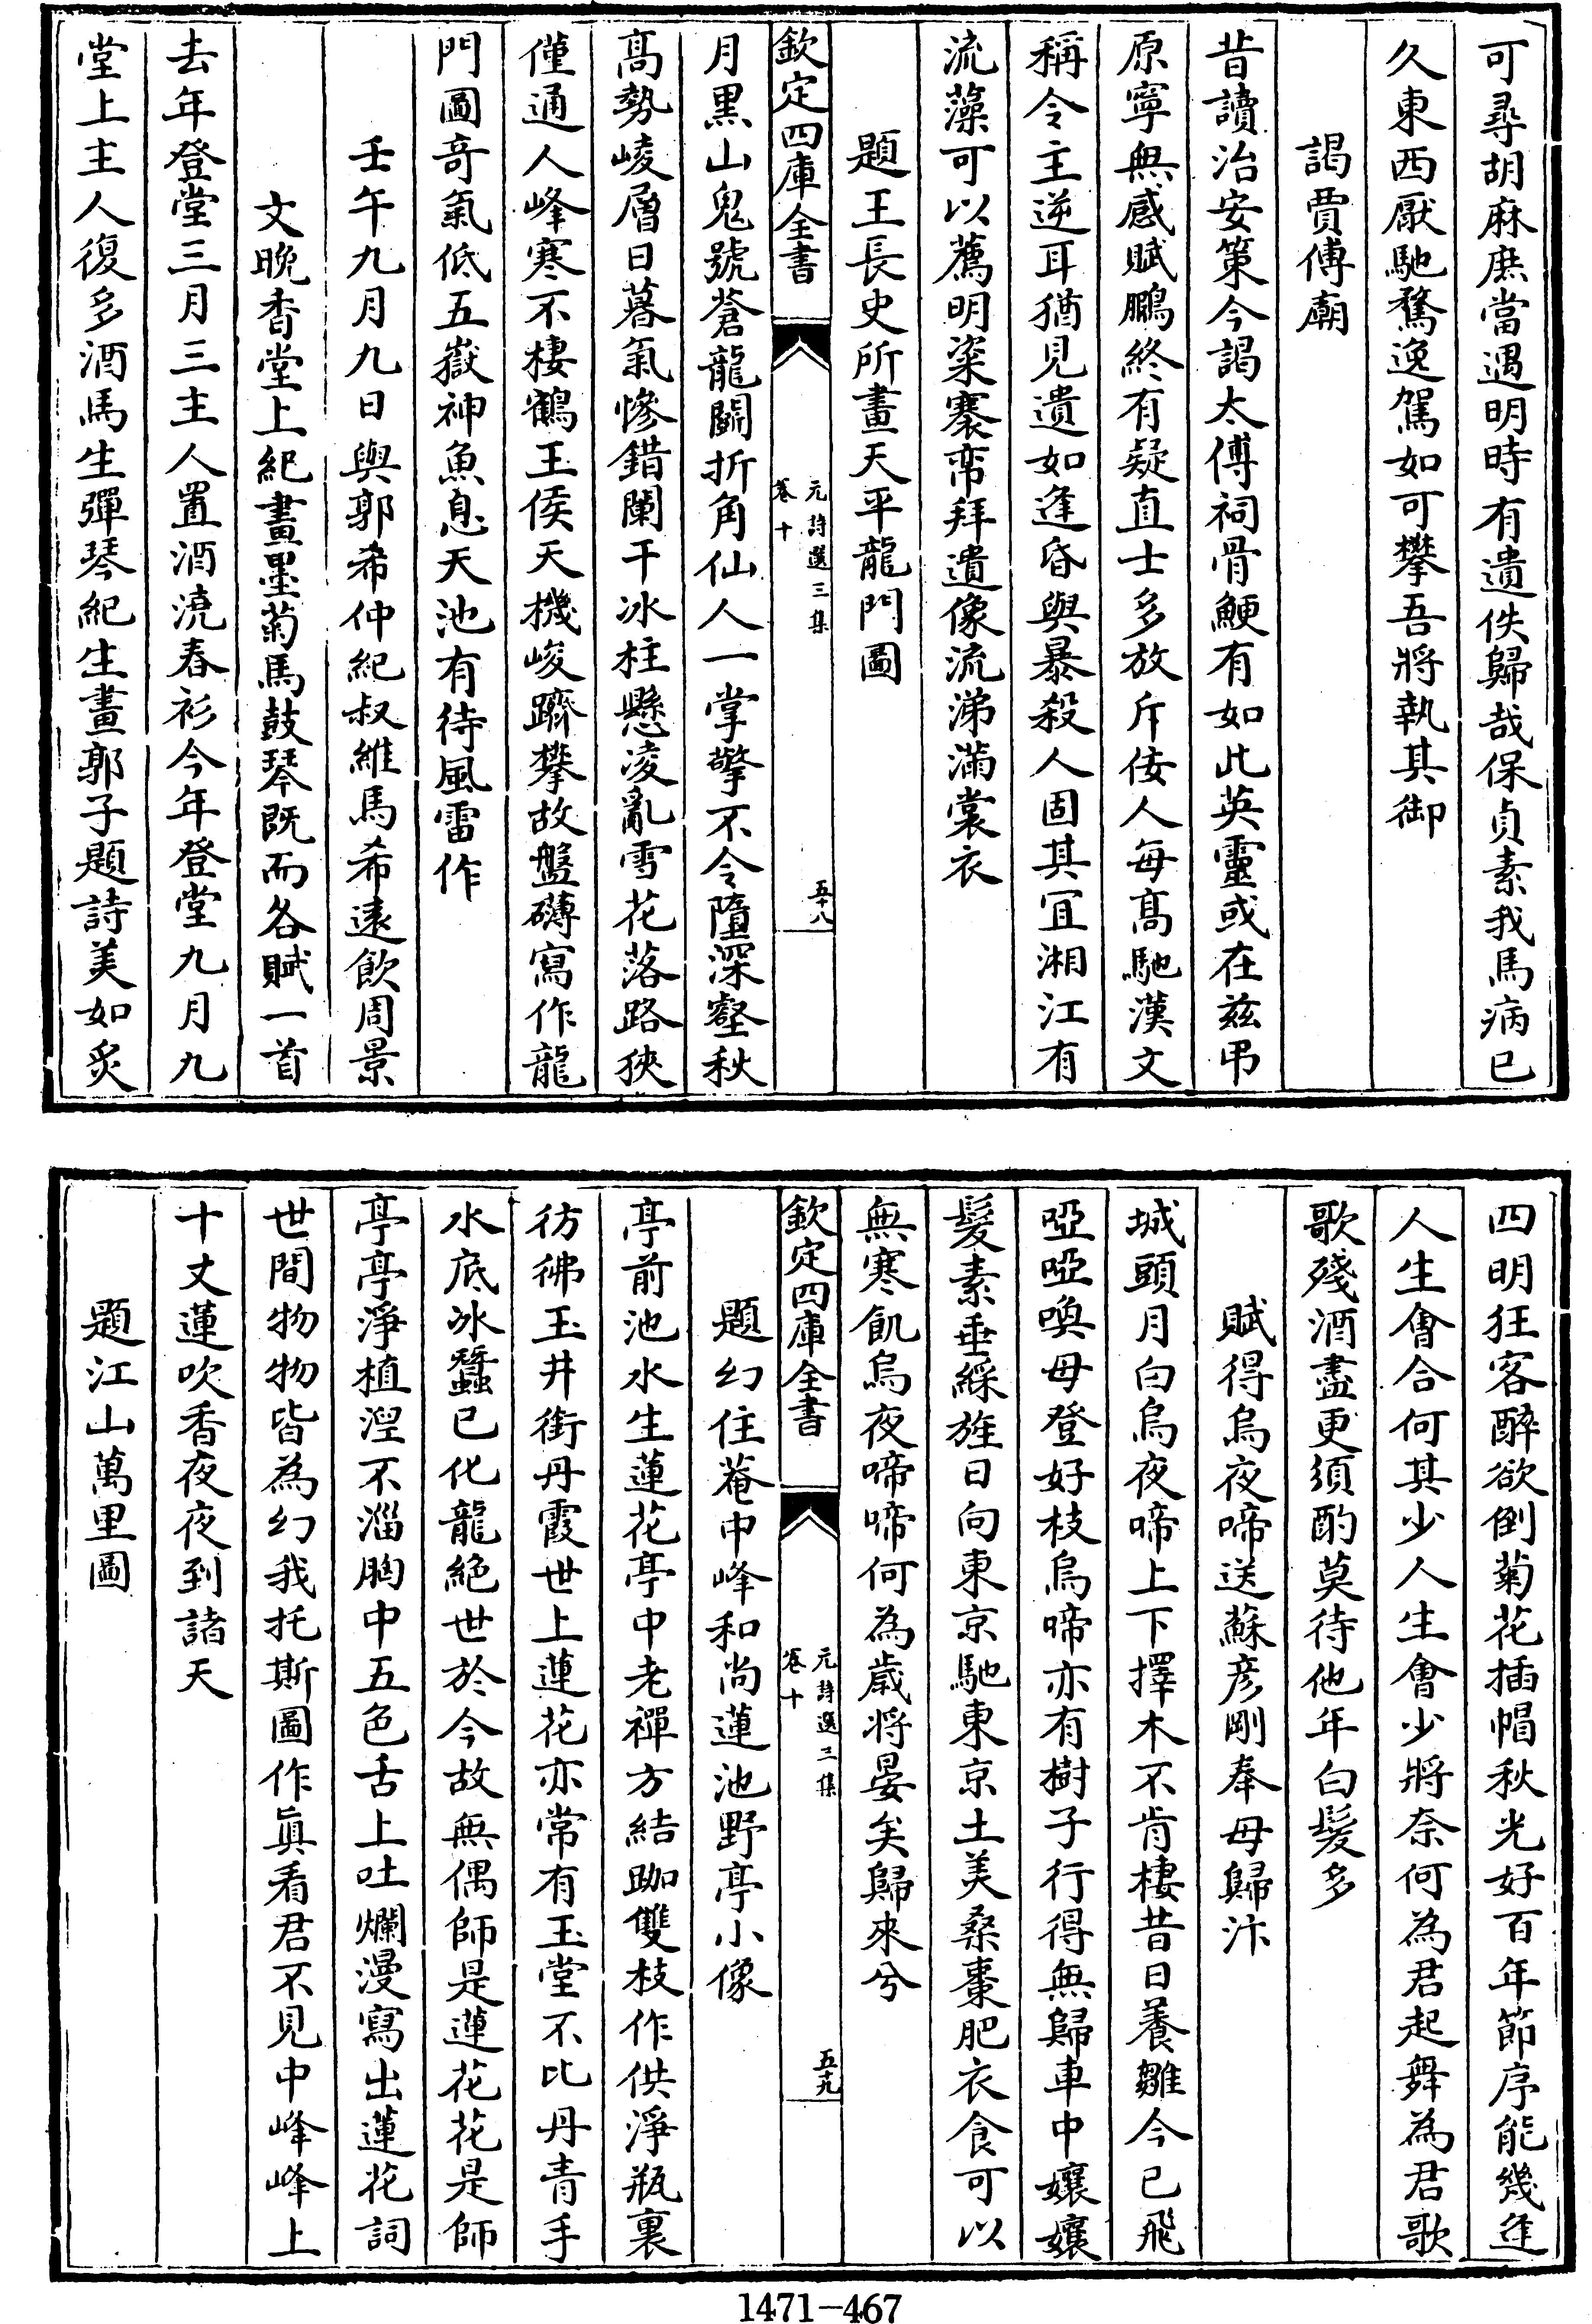 可尋胡麻庶當遇明時有遺佚歸哉保貞素我馬病已
久東西厭馳騖逸駕如可攀吾將執其御
謁賈傅廟
昔讀治安策今謁太傅祠骨鯁有如此英靈或在茲弔
原寧無感賦鵩終有疑直士多放斥佞人每高馳漢文
稱令主逆耳猶見遺如逢昏與暴殺人固其冝湘江有
流藻可以薦明粢褰帟拜遺像流涕滿裳衣
題王長史所畫天平龍門圖
欽定四庫全書
元詩選三集
卷十
五十八
月黒山鬼號蒼龍鬭折角仙人一掌擎不令墮深壑秋
髙勢崚層日暮氣慘錯闌干冰柱懸凌亂雪花落路狹
僅通人峰寒不棲鶴王侯天機峻躋攀故盤礴寫作龍
門圖竒氣低五嶽神魚息天池有待風雷作
壬午九月九日與郭希仲紀叔維馬希逺飲周景
文晚香堂上紀畫墨菊馬鼓琴既而各賦一首
去年登堂三月三主人置酒澆春衫今年登堂九月九
堂上主人復多酒馬生彈琴紀生畫郭子題詩美如炙
四明狂客醉欲倒菊花插帽秋光好百年節序能幾逢
人生會合何其少人生會少將奈何為君起舞為君歌
歌殘酒盡更須酌莫待他年白髮多
賦得烏夜啼送蘇彥剛奉母歸汴
城頭月白烏夜啼上下擇木不肯棲昔日養雛今已飛
啞啞喚母登好枝烏啼亦有樹子行得無歸車中孃孃
髮素垂綵旌日向東京馳東京土美桑棗肥衣食可以
無寒飢烏夜啼啼何為嵗將晏矣歸來兮
欽定四庫全書
元詩選三集
卷十
五十九
題幻住菴中峰和尚蓮池野亭小像
亭前池水生蓮花亭中老禪方結跏雙枝作供淨瓶裏
彷彿玉井銜丹霞世上蓮花亦常有玉堂不比丹青手
水底冰蠶已化龍絶世於今故無偶師是蓮花花是師
亭亭淨植涅不淄胸中五色舌上吐爛漫寫出蓮花詞
世間物物皆為幻我托斯圖作眞看君不見中峰峰上
十丈蓮吹香夜夜到諸天
題江山萬里圖
1471-467